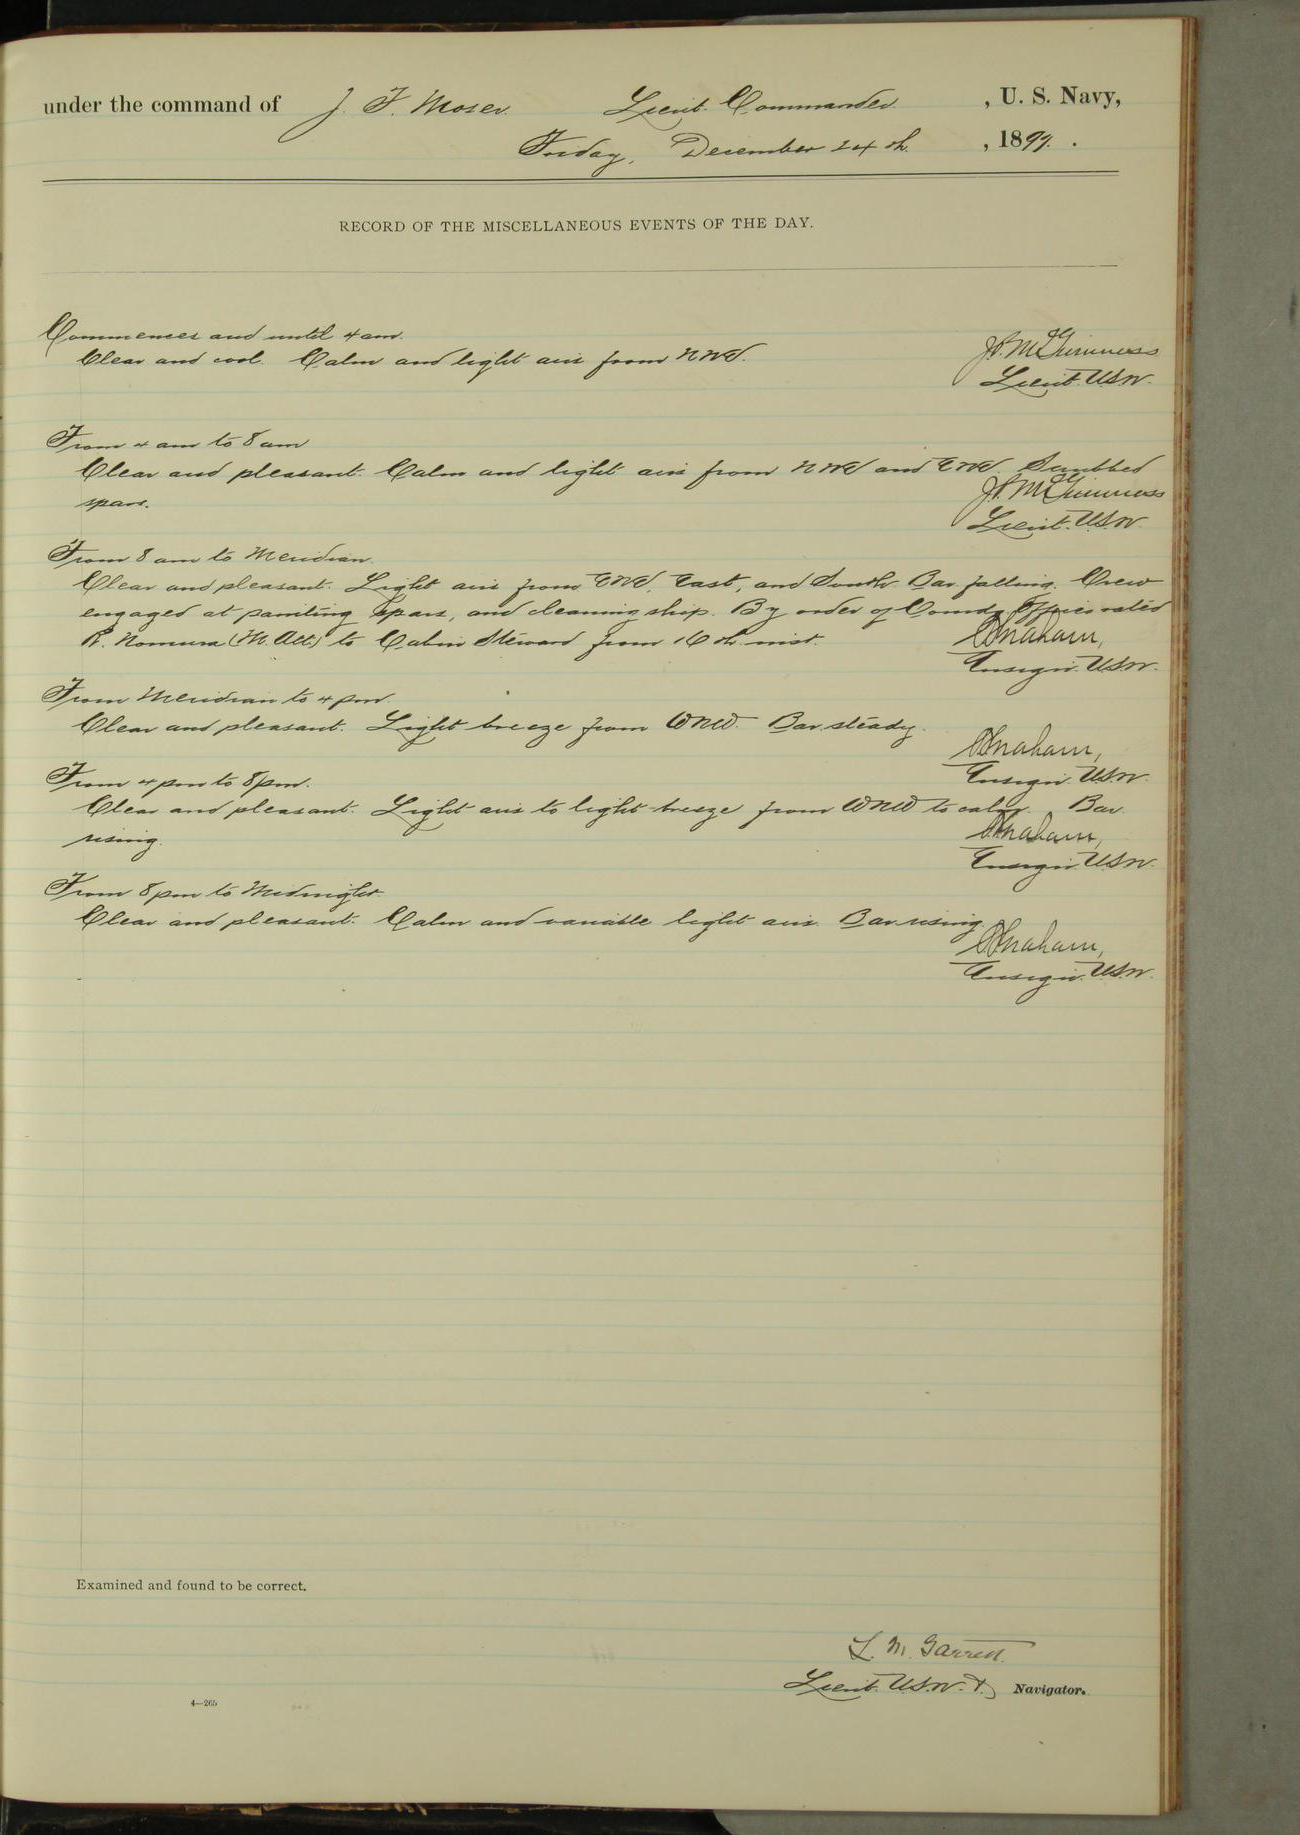 under the command of J. F. Moser. Lieut. Commander, U. S. Navy,
Friday, December 24th, 1897.
RECORD OF THE MISCELLANEOUS EVENTS OF THE DAY.
Commences and until 4 am.
Clear and cool. Calm and light airs from NNE.
J.P. McGuinness
Lieut. U.S.N.
From 4 am to 8 am
Clear and pleasant. Calm and light airs from NNE and ENE. Scrubbed
spars.
J.P. McGuinness
Lieut. U.S.N.
From 8 am to Meridian.
Clear and pleasant. Light airs from ENE, East, and South. Bar falling. Crew
engaged at painting spars, and cleaning ship. By order of Comdg Officer rated
R. Nomura (M. Att.) to Cabin Steward from 16th inst.
Ensign U.S.N.
From Meridian to 4 pm.
Clear and pleasant. Light breeze from WNW. Bar. steady.
Ensign U.S.N.
From 4 pm to 8 pm.
Clear and pleasant. Light airs to light breeze from WNW to calm. Bar.
rising.
Ensign U.S.N.
From 8 pm to Midnight.
Clear and pleasant. Calm and variable light airs. Bar rising.
Ensign U.S.N.
Examined and found to be correct.
L. M. Garrett.
Lieut. U.S.N. Navigator.
4—265